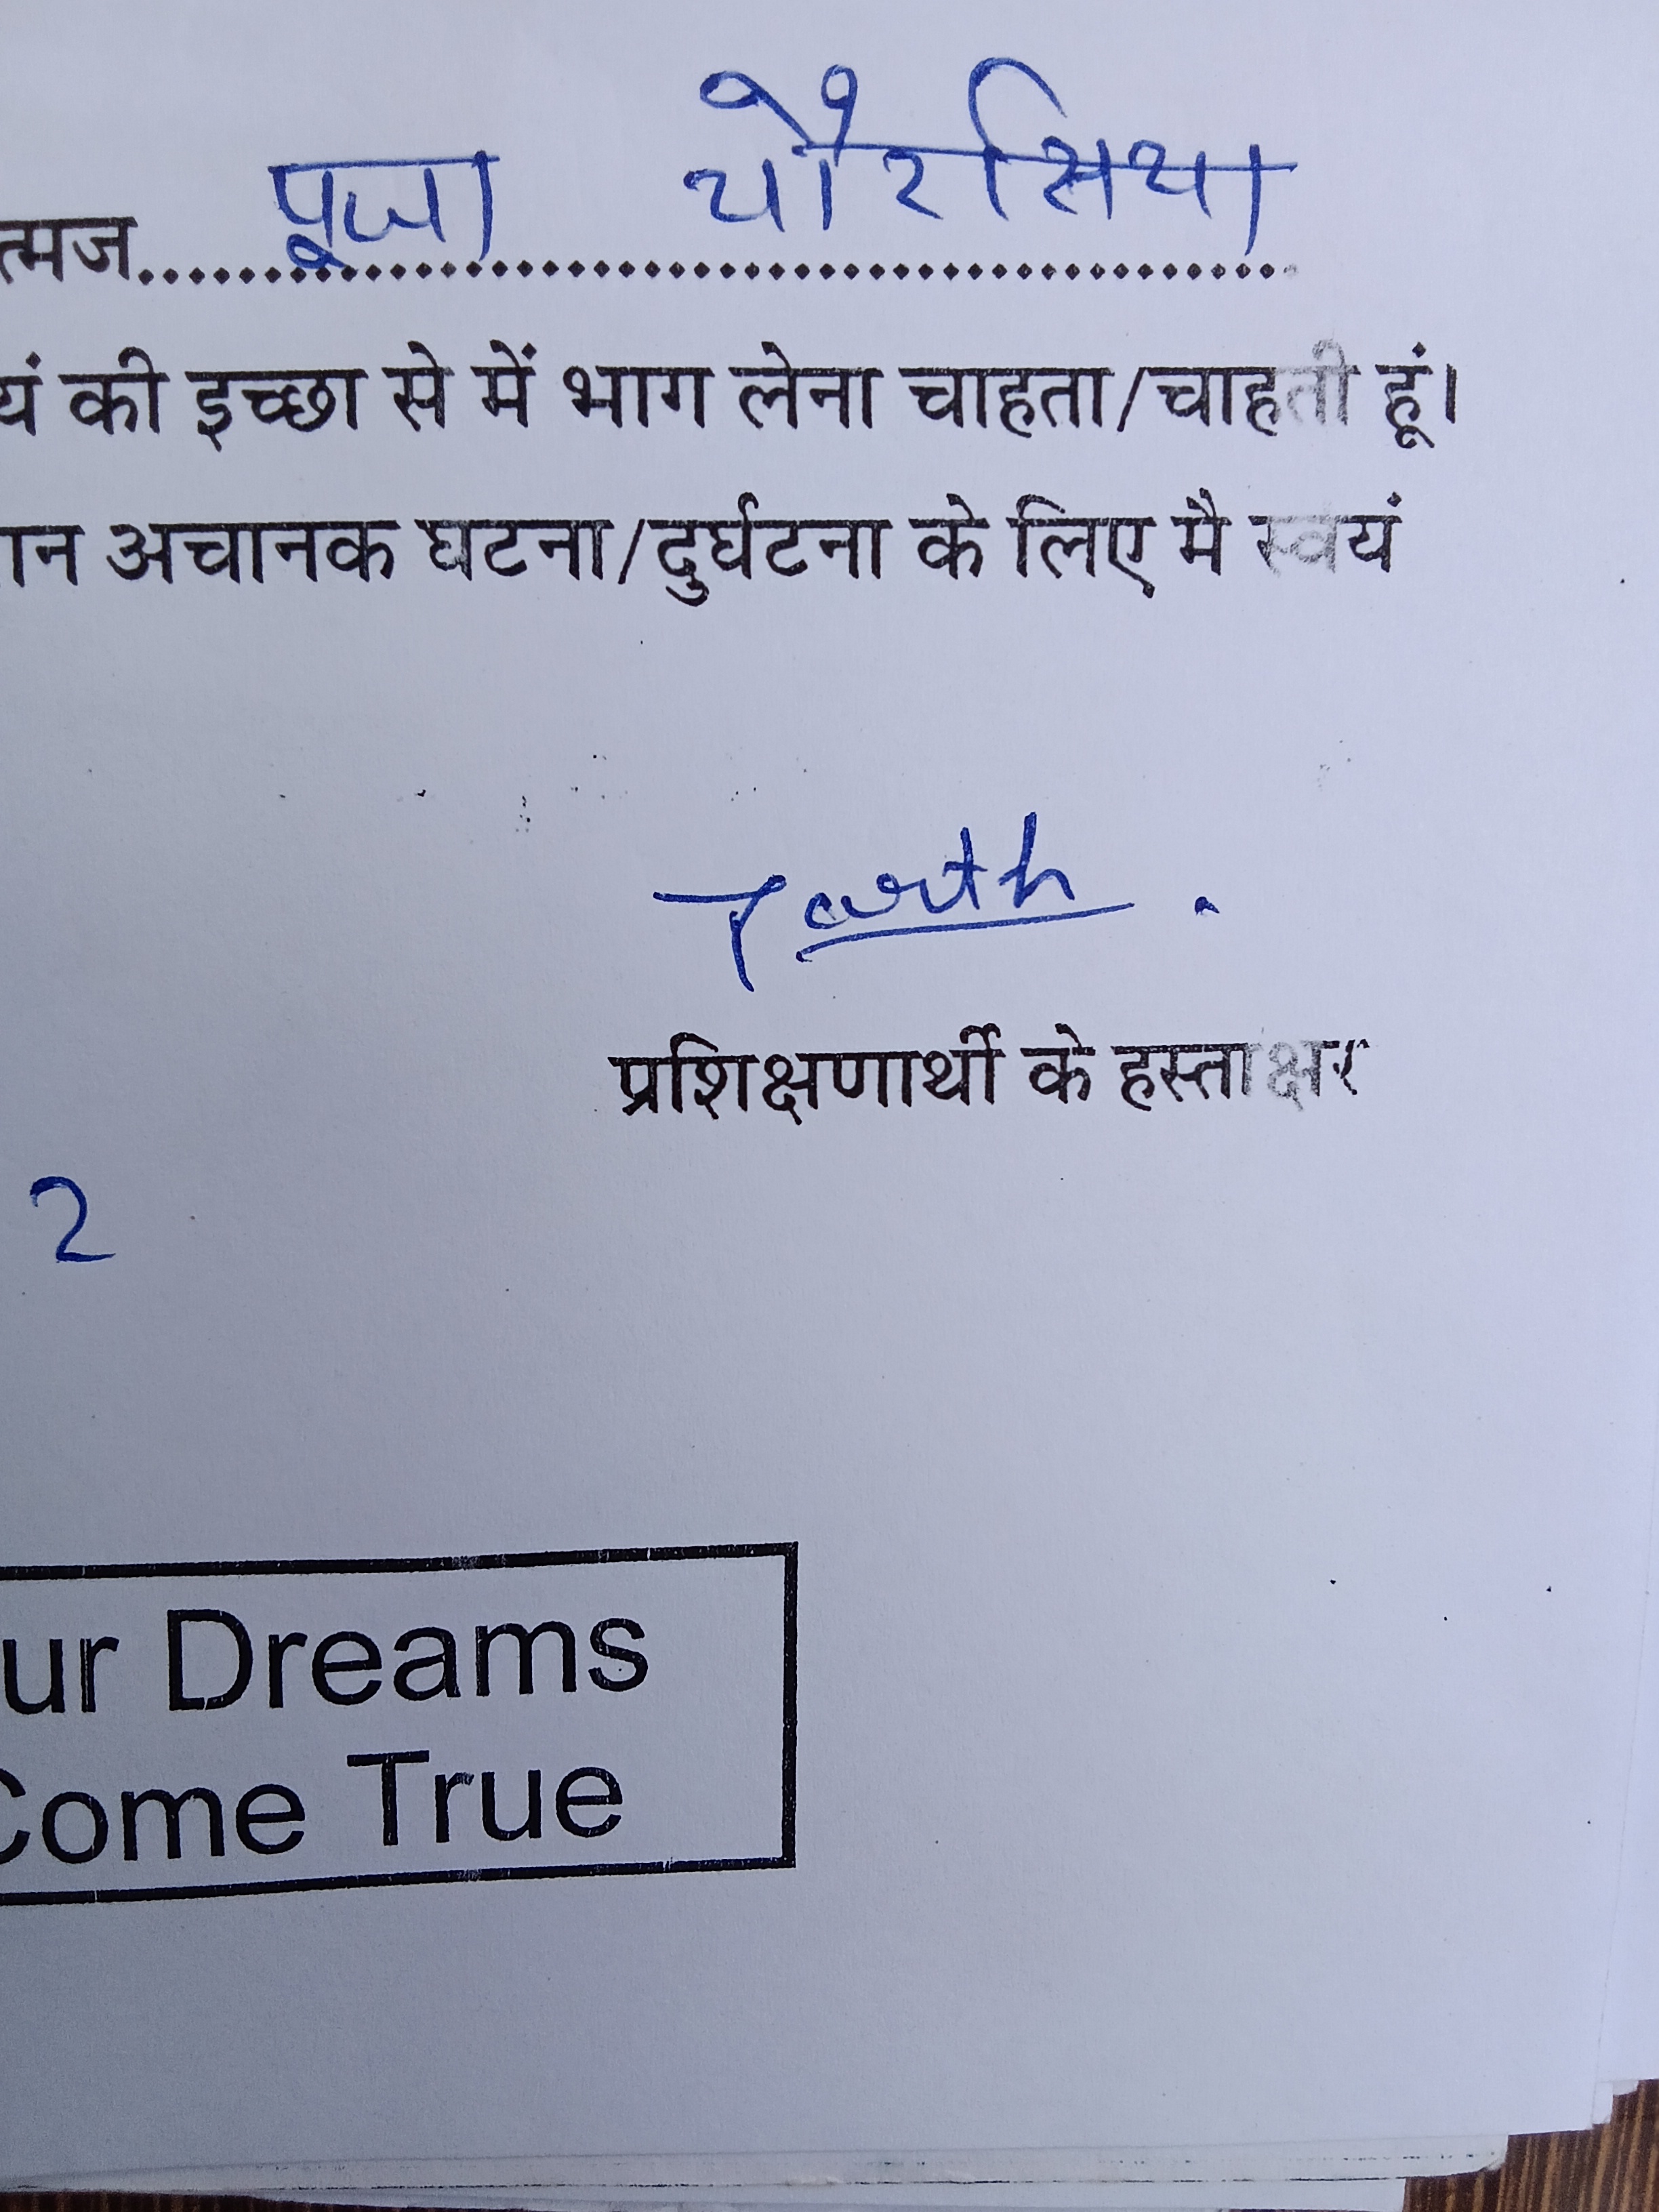 त्मज.......... पूजा चौरसिया
यं की इच्छा से में भाग लेना चाहता/चाहती हूं।
ान अचानक घटना/दुर्घटना के लिए मै स्वयं
Parth.
प्रशिक्षणार्थी के हस्ताक्षर
2
ur Dreams
Come True